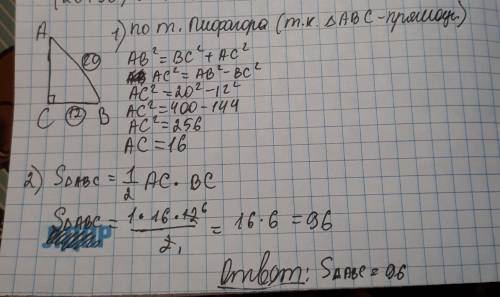 1) по т. Пифагора (т.к. △ABC - прямоуг.)
A
20
C 12 B
AB² = BC² + AC²
AC² = AB² - BC²
AC² = 20² - 12²
AC² = 400 - 144
AC² = 256
AC = 16
2) S△ABC = 1/2 AC · BC
S△ABC = 1 · 16 · 12⁶ / 2₁ = 16 · 6 = 96
Ответ: S△ABC = 96